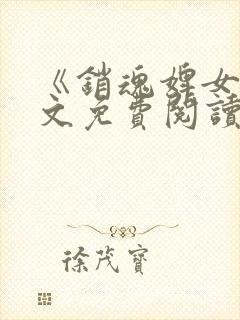 《銷魂婢女
文免費閱讀
徐茂寶